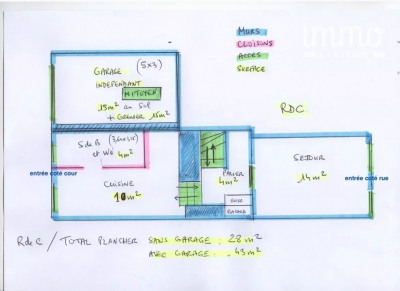 immo
MURS
CLOISONS
ACCES
SURFACE
GARAGE (5x3)
INDEPENDANT
MITOYEN
15m² au Sol
+ GRENIER 15m²
RDC
S de B
et Wc 4m²
entrée coté cour
CUISINE
10m²
PALIER
4m²
SEJOUR
14m²
entrée coté rue
RdeC / TOTAL PLANCHER SANS GARAGE : 28m²
AVEC GARAGE : 43m²